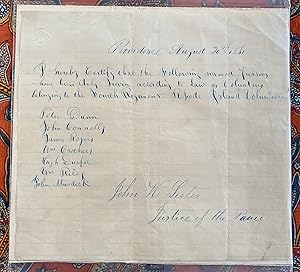 Providence August 30th 1861
I hereby Certify that the Following named Persons
have been duly Sworn according to Law as Volunteers
belonging to the Fourth Regiment Rhode Island Volunteers
Peter Dunn
John Connelly
James Rogers
Wm
Hugh Durfee
Wm Riley
John Murdock
John H
Justice of the Peace